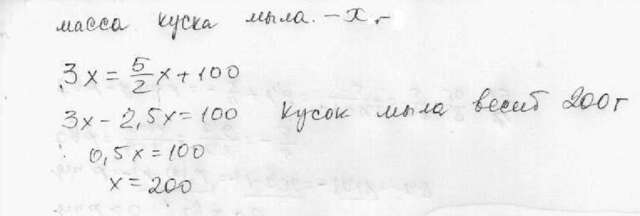 масса куска мыла. – x г
3x = 5/2 x + 100
3x - 2,5x = 100 Кусок мыла весит 200 г
0,5x = 100
x = 200